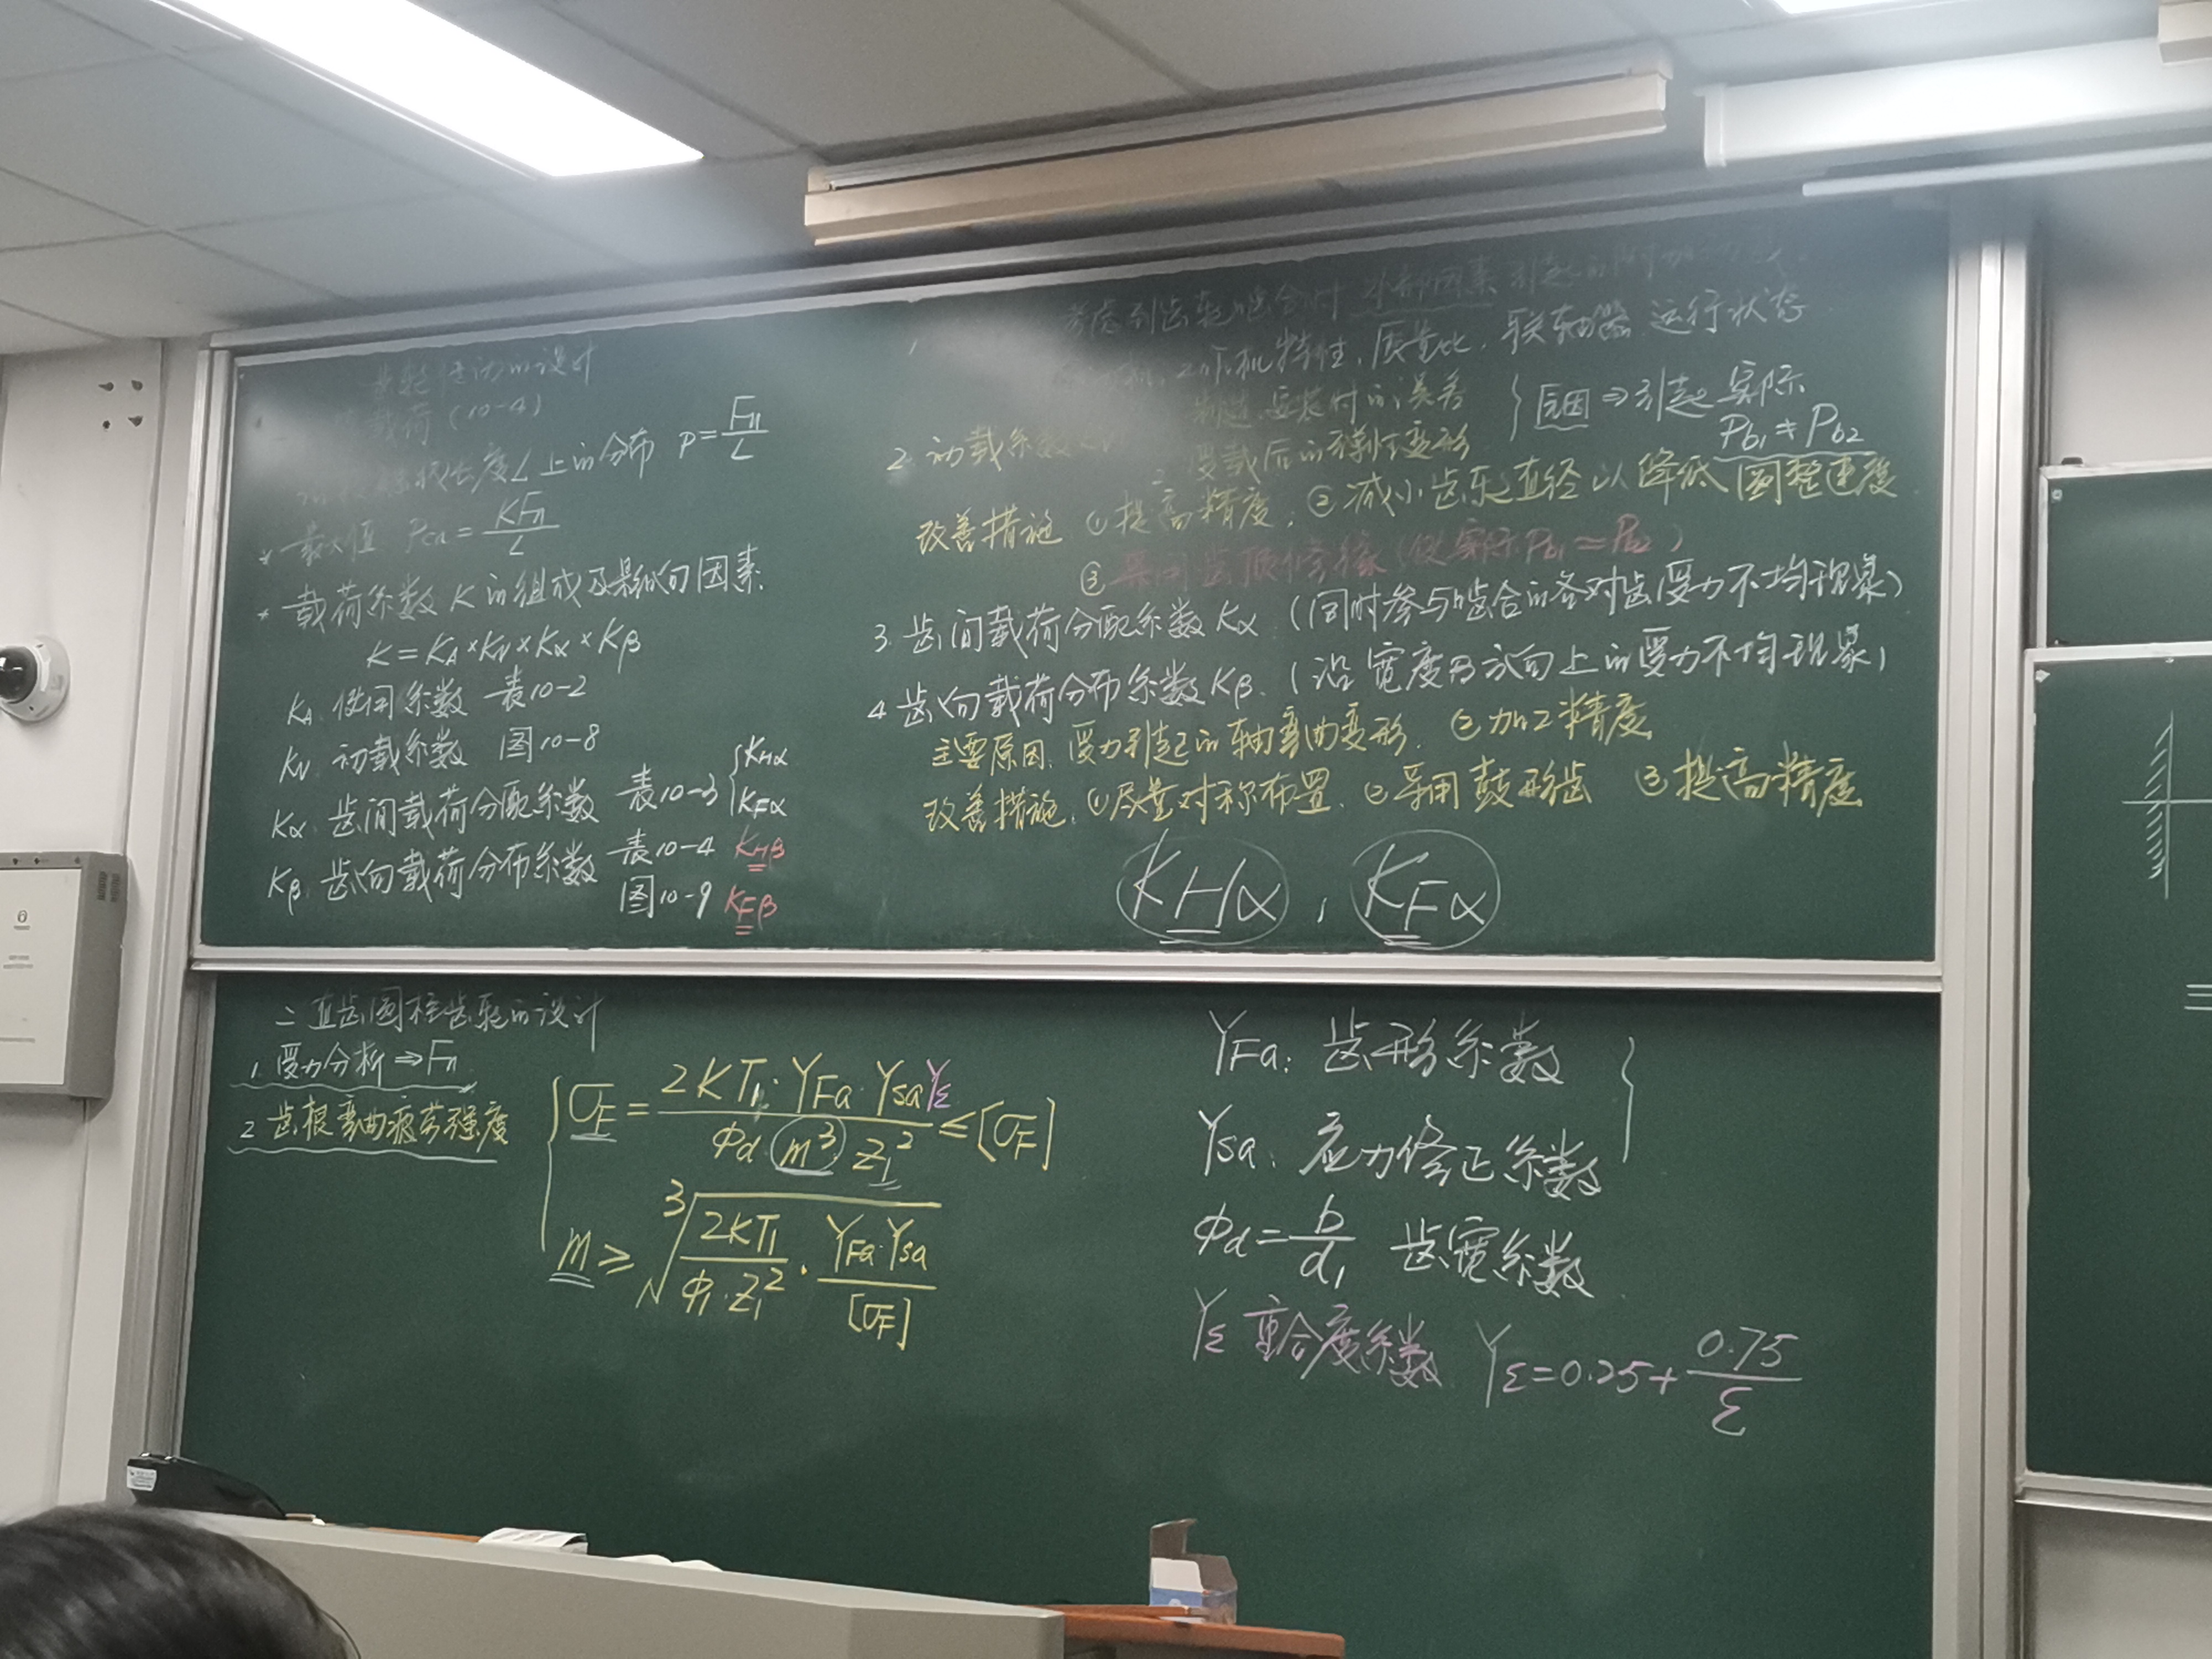 齿轮传动的设计
载荷(10-4)
长度L上的分布 P=Fn/L
* 最大值 Pca=KFn/L
* 载荷系数K的组成及影响因素
K=KA×KV×Kα×Kβ
KA. 使用系数 表10-2
KV. 动载系数 图10-8
Kα. 齿间载荷分配系数 表10-3 { KHα KFα
Kβ. 齿向载荷分布系数 表10-4 KHβ
图10-9 KFβ
考虑到齿轮啮合时 外部因素 引起的附加
工作机特性、质量比、联轴器 运行状态
2. 动载系数
制造、安装时的误差
受载后的弹性变形
} 原因⇒引起实际
Pb1≠Pb2
改善措施 ①提高精度. ②减小齿轮直径以降低圆周速度
③采用齿顶修缘(使实际Pb1≈Pb2)
3. 齿间载荷分配系数Kα. (同时参与啮合的各对齿受力不均现象)
4. 齿向载荷分布系数Kβ. (沿宽度B方向上的受力不均现象)
主要原因. 受力引起的轴弯曲变形. ②加工精度
改善措施. ①尽量对称布置. ②采用鼓形齿 ③提高精度
KHα , KFα
二 直齿圆柱齿轮的设计
1. 受力分析⇒Fn
2. 齿根弯曲疲劳强度
σF=2KT1·YFa·YSaYε/Φd m³ Z1²≤[σF]
m≥∛(2KT1/Φ1·Z1² · YFa·YSa/[σF])
YFa: 齿形系数
YSa. 应力修正系数
Φd=b/d1 齿宽系数
Yε 重合度系数 Yε=0.25+0.75/ε